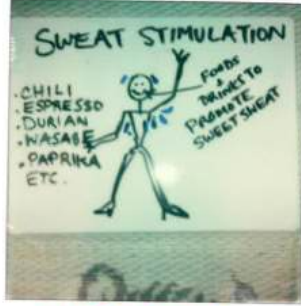 SWEAT STIMULATION
• CHILI
• ESPRESSO
• DURIAN
• WASABE
• PAPRIKA
ETC.
FOODS
DRINKS TO
PROMOTE
SWEET SWEAT